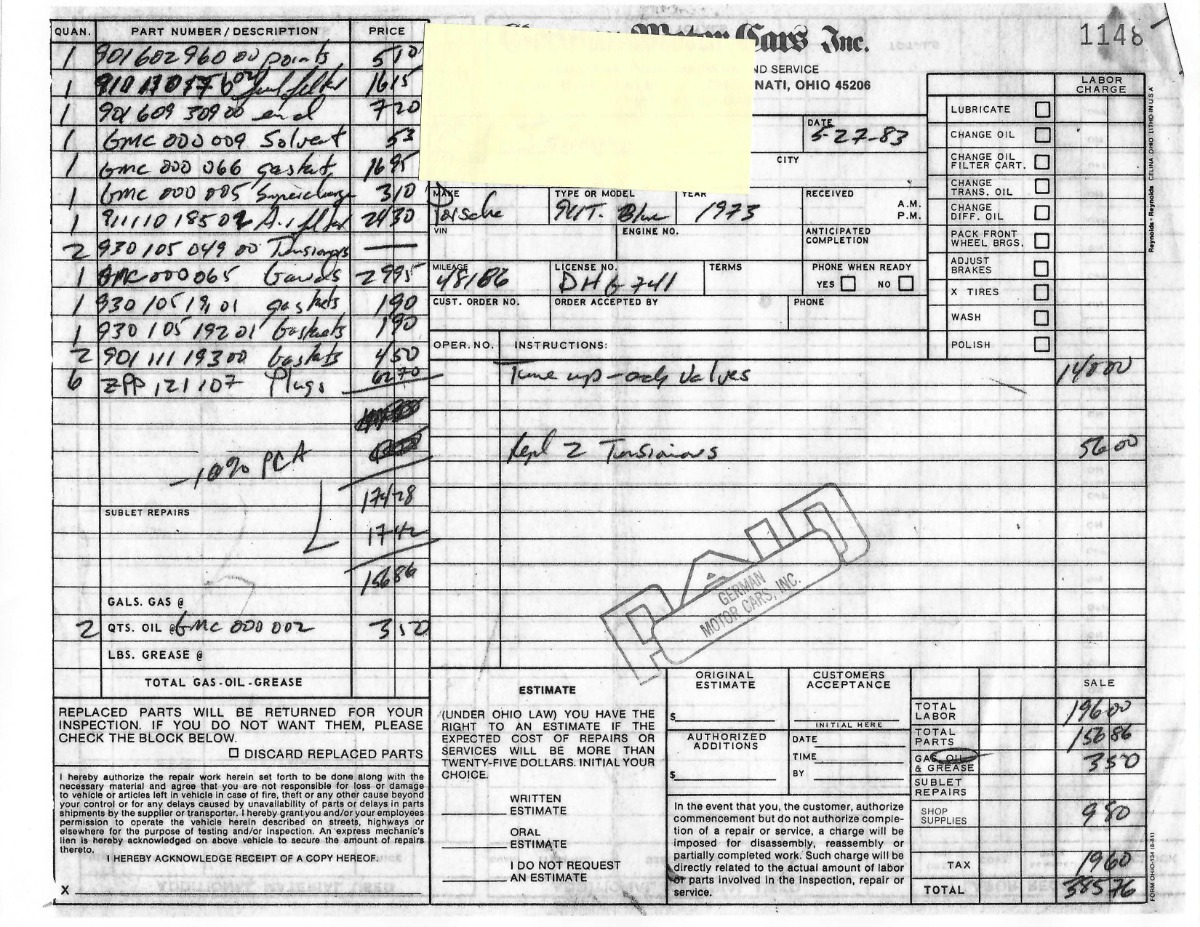 Motor Cars Inc.
1148
ND SERVICE
NATI, OHIO 45206
QUAN. PART NUMBER / DESCRIPTION PRICE
1 901 602 960 00 points 5 10
1 fuel filter 16 15
1 901 609 309 00 7 20
1 GMC 000 009 Solvent 53
1 GMC 000 066 gaskets 16 95
1 GMC 000 005 Supercharge 3 10
1 911 110 185 02 Air filter 24 30
2 930 105 049 00 Tensioners —
1 GMC 000 065 29 95
1 930 105 191 01 gaskets 1 90
1 930 105 192 01 Gaskets 1 90
2 901 111 193 00 Gaskets 4 50
6 ZPP 121 107 Plugs 62 70
-10% PCA
174 28
17 42
156 86
SUBLET REPAIRS
GALS. GAS @
2 QTS. OIL @ GMC 000 002 3 50
LBS. GREASE @
TOTAL GAS-OIL-GREASE
DATE 5-27-83
CITY
MAKE Porsche
TYPE OR MODEL 911T. Blue
YEAR 1973
RECEIVED A.M. P.M.
VIN
ENGINE NO.
ANTICIPATED COMPLETION
MILEAGE 48186
LICENSE NO. DHG 741
TERMS
PHONE WHEN READY
YES NO
CUST. ORDER NO.
ORDER ACCEPTED BY
PHONE
OPER. NO. INSTRUCTIONS:
Tune up - adj valves 140 00
Repl 2 Tensioners 56 00
LABOR CHARGE
LUBRICATE
CHANGE OIL
CHANGE OIL FILTER CART.
CHANGE TRANS. OIL
CHANGE DIFF. OIL
PACK FRONT WHEEL BRGS.
ADJUST BRAKES
X TIRES
WASH
POLISH
PAID
GERMAN
MOTOR CARS, INC.
REPLACED PARTS WILL BE RETURNED FOR YOUR
INSPECTION. IF YOU DO NOT WANT THEM, PLEASE
CHECK THE BLOCK BELOW.
DISCARD REPLACED PARTS
I hereby authorize the repair work herein set forth to be done along with the
necessary material and agree that you are not responsible for loss or damage
to vehicle or articles left in vehicle in case of fire, theft or any other cause beyond
your control or for any delays caused by unavailability of parts or delays in parts
shipments by the supplier or transporter. I hereby grant you and/or your employees
permission to operate the vehicle herein described on streets, highways or
elsewhere for the purpose of testing and/or inspection. An express mechanic's
lien is hereby acknowledged on above vehicle to secure the amount of repairs
thereto.
I HEREBY ACKNOWLEDGE RECEIPT OF A COPY HEREOF.
X
ESTIMATE
(UNDER OHIO LAW) YOU HAVE THE
RIGHT TO AN ESTIMATE IF THE
EXPECTED COST OF REPAIRS OR
SERVICES WILL BE MORE THAN
TWENTY-FIVE DOLLARS. INITIAL YOUR
CHOICE.
WRITTEN ESTIMATE
ORAL ESTIMATE
I DO NOT REQUEST AN ESTIMATE
ORIGINAL ESTIMATE
$
AUTHORIZED ADDITIONS
$
CUSTOMERS ACCEPTANCE
INITIAL HERE
DATE
TIME
BY
In the event that you, the customer, authorize
commencement but do not authorize comple-
tion of a repair or service, a charge will be
imposed for disassembly, reassembly or
partially completed work. Such charge will be
directly related to the actual amount of labor
or parts involved in the inspection, repair or
service.
SALE
TOTAL LABOR 196 00
TOTAL PARTS 156 86
GAS, OIL & GREASE 3 50
SUBLET REPAIRS
SHOP SUPPLIES 9 80
TAX 19 60
TOTAL 385 76